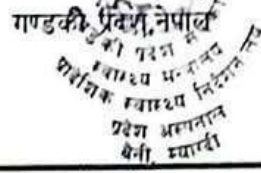 गण्डकी प्रदेश, नेपाल
प्रदेश
स्वास्थ्य मन्त्रालय
स्वास्थ्य निर्देशनालय
प्रदेश अस्पताल
बेनी, म्याग्दी